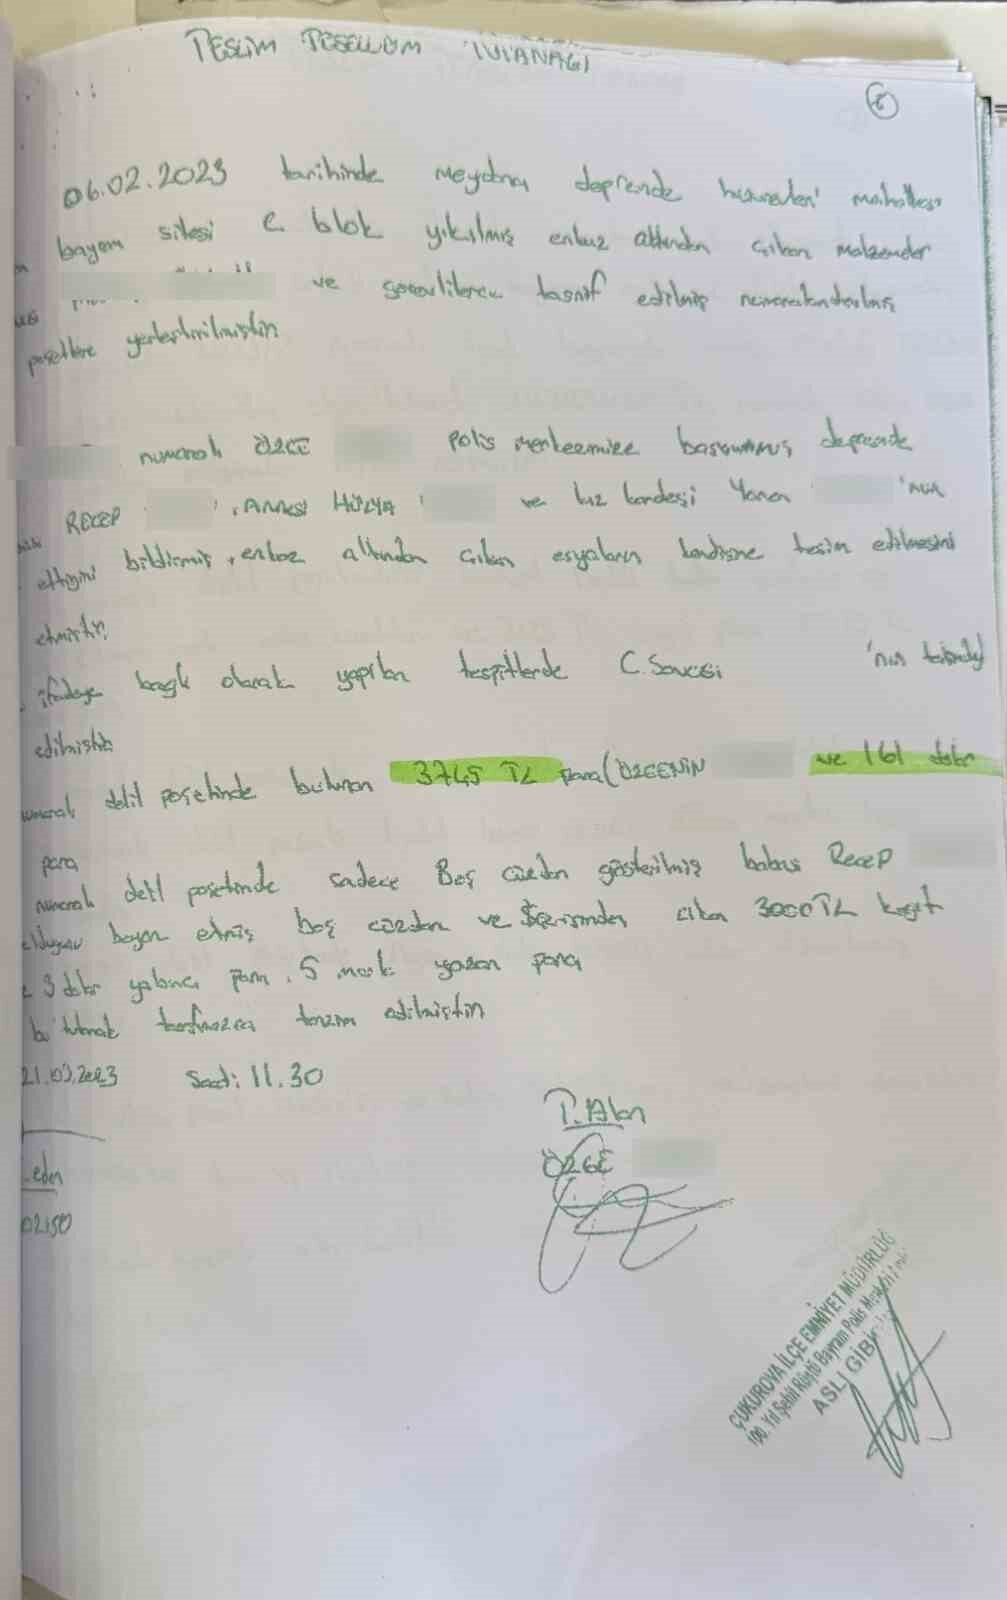 TESLİM TESELLÜM TUTANAĞI
6
06.02.2023 tarihinde meydana deprende huzurevleri mahallesi
bayam sitesi C blok yıkılmış enkaz altından çıkan malzemeler
ve görevlilerce tasnif edilmiş numaralandırılmış
poşetlere yerleştirilmiştir.
numaralı ÖZGE polis merkezimize başvurmuş deprende
RECEP , ANNESİ HÜLYA ve kız kardeşi Yaren 'nun
ettiğini bildirmiş, enkaz altından çıkan eşyaların kendisine teslim edilmesini
etmiştir.
ifadeye bağlı olarak yapılan tespitlerde C.Savcısı 'nın talimatıyl
edilmiştir
numaralı delil poşetinde bulunan 3745 TL para (ÖZGENİN ve 161 dolar
para
numaralı delil poşetinde sadece Boş cüzdan gösterilmiş babası Recep
olduğunu beyan etmiş boş cüzdan ve içerisinden çıkan 3000 TL kağıt
3 dolar yabancı para, 5 mark yazan para
bu tutanak tarafımızca tanzim edilmiştir.
21.02.2023 Saat: 11.30
T. Alan
ÖZGE
eden
ÇUKUROVA İLÇE EMNİYET MÜDÜRLÜĞ
100. Yıl Şehit Rüştü Bayram Polis Merkezi
ASLI GİBİ